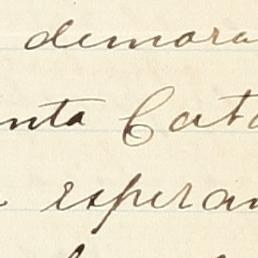 demora
nta Cata
esperan